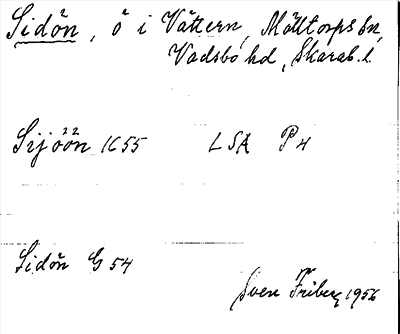 Sidön, ö i Vättern, Mölltorps sn,
Vadsbo hd, Skarab. l.
Sijöön 1655 LSA P4
Sidön G54
Sven Friberg 1956